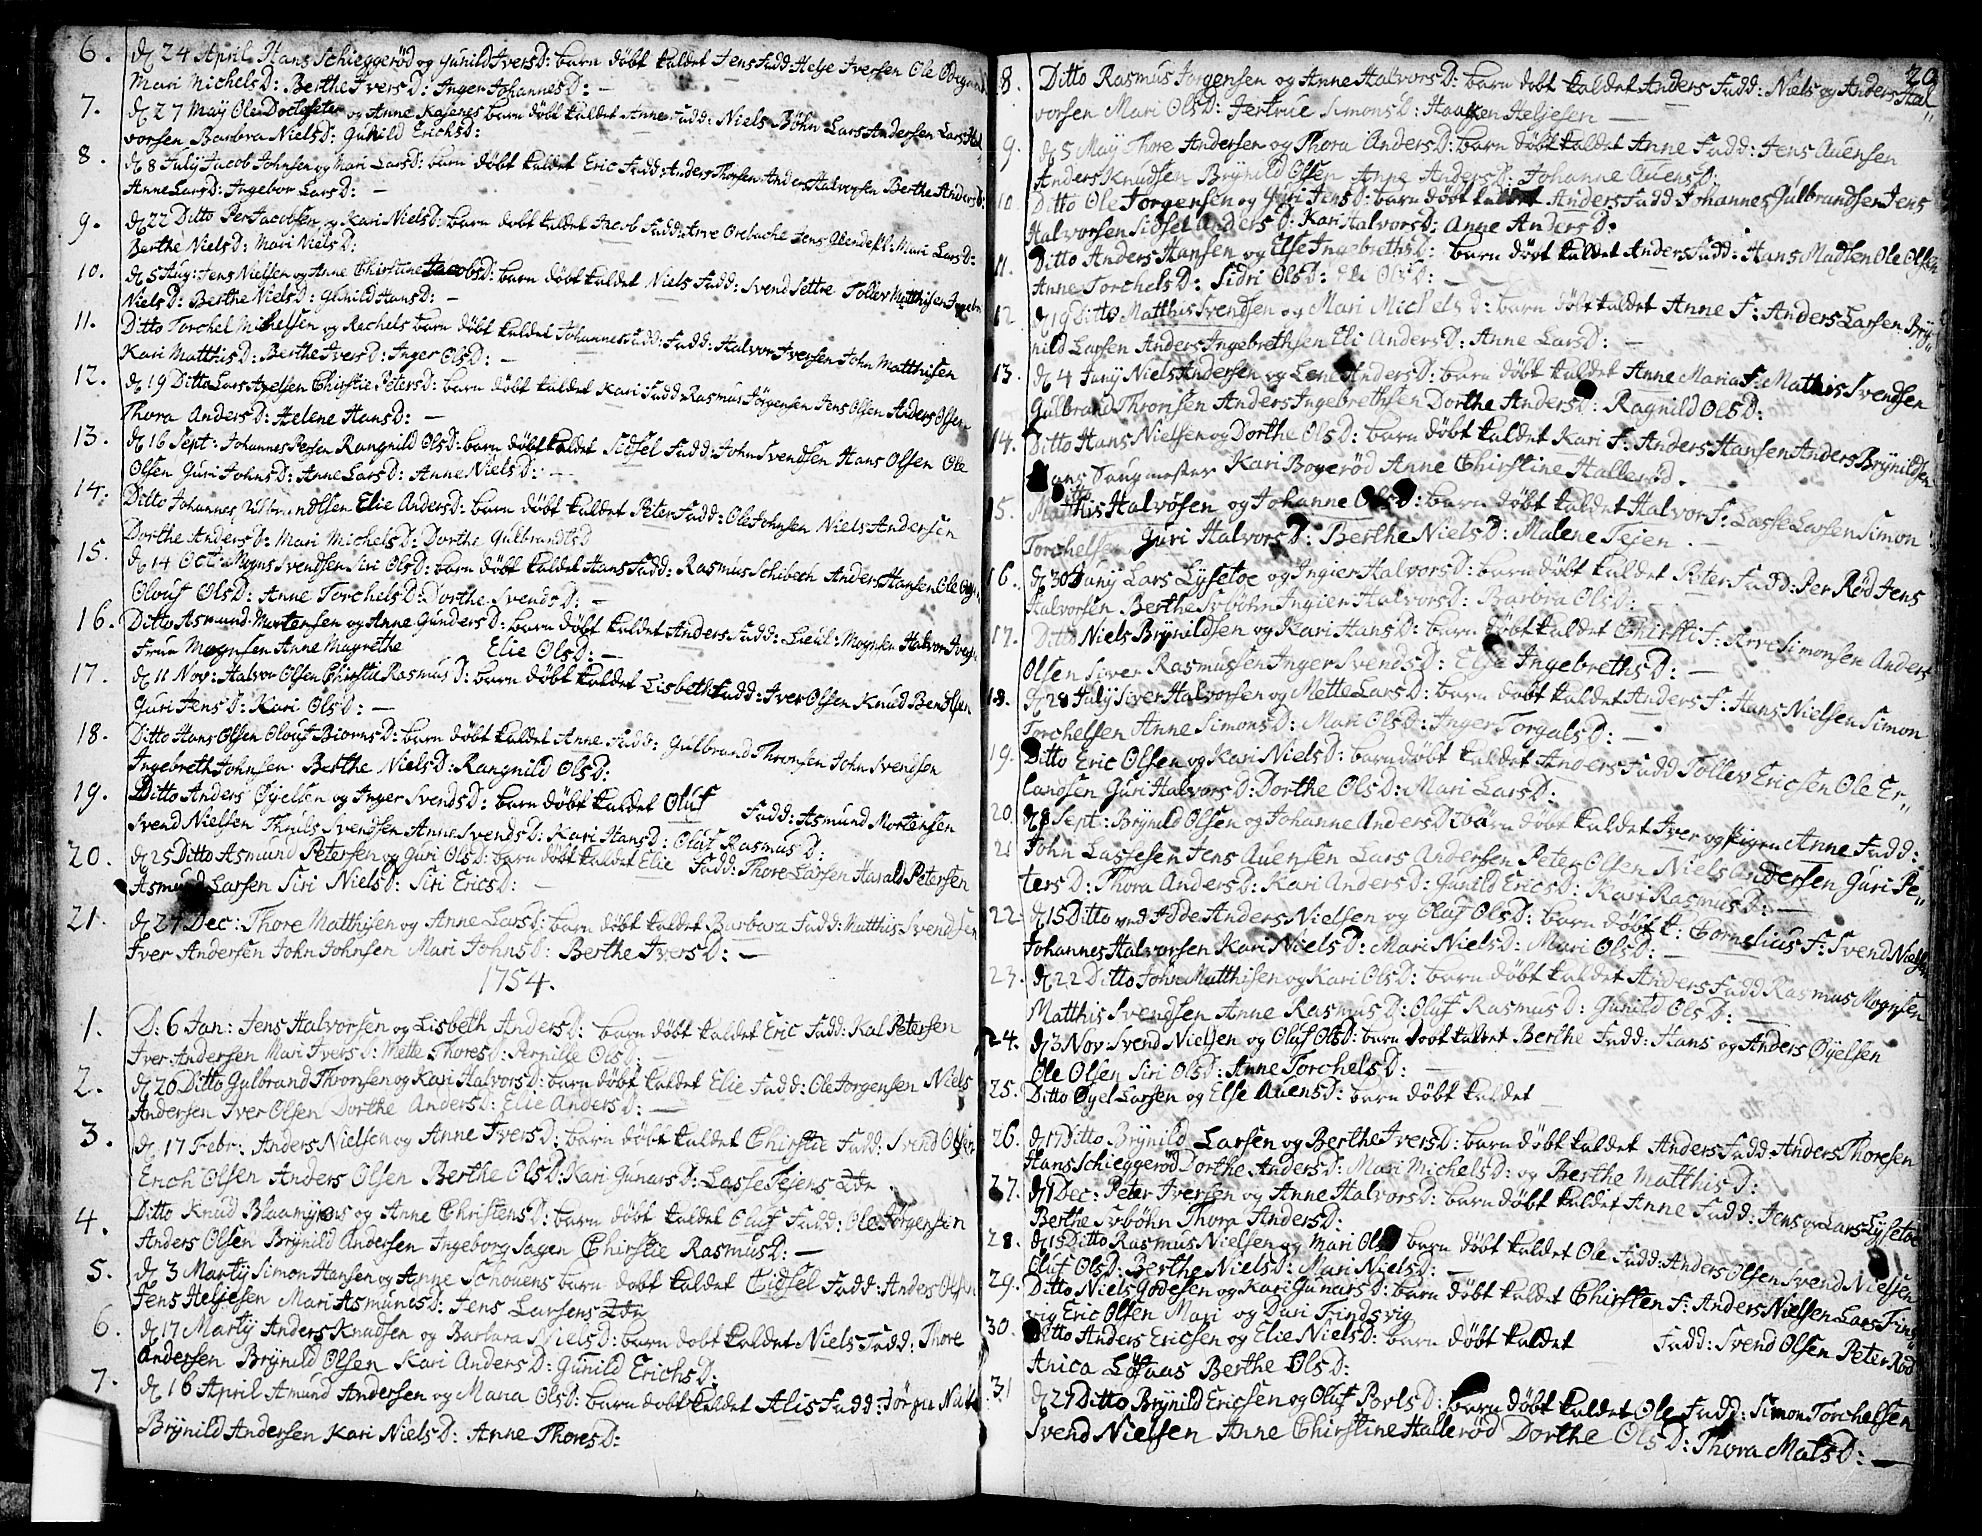 6. d 24 April Hans Schieggerød og Gunild IversD: barn døbt kaldet Jens Fadd: Helje Iversen Ole
Mari MichelsD: Berthe IversD: Inger JohannesD: —
7. d 27 May Ole og Anne barn døbt kaldet Anne Fadd: Niels Bøhn Lars Andersen Lars Hal
vorsen Barbra NielsD: Gunild ErichsD:
8. d 8 July Jacob Johnsen og Mari LarsD: barn døbt kaldet Eric Fadd: Anders Thorsen Anders Halvorsen Berthe AndersD:
Anne LarsD: Ingebor LarsD: —
9. d 22 Ditto Per Jacobsen og Kari NielsD: barn døbt kaldet Jacob Fadd: Arve Orebache Jens Mari LarsD:
Berthe NielsD: Mari NielsD:
10. d 5 Aug: Jens Nielsen og Anne Chirstine JacobsD: barn døbt kaldet Niels Fadd: Svend Settre Tollev Matthisen
NielsD: Berthe NielsD: Gunild HansD: —
11. Ditto Torchel Michelsen og Rachels barn døbt kaldet Johannes Fadd: Halvor Iversen John Matthisen
Kari MatthisD: Berthe IversD: Inger OlsD: —
12. d 19 Ditto Lars Axelsen Chirstie PetersD: barn døbt kaldet Kari Fadd: Rasmus Jørgensen Jens Olsen Anders Olsen
Thora AndersD: Helene HansD: —
13. d 16 Sept: Johannes Persen Rangnild OlsD: barn døbt kaldet Sidsel Fadd: John Svendsen Hans Olsen Ole
Olsen Guri JohnsD: Anne LarsD: Anne NielsD: —
14. Ditto Johannes Elie AndersD: barn døbt kaldet Peter Fadd: Ole Johnsen Niels Andersen
Dorthe AndersD: Mari MichelsD: Dorthe GulbrandtsD
15. d 14 Oct: Mogns Svendsen Siri OlsD: barn døbt kaldet Hans Fadd: Rasmus Schibech Anders Hansen Ole
Olouf OlsD: Anne TorchelsD: Dorthe SvendsD: —
16. Ditto Asmund Mortensen og Anne GundersD: barn døbt kaldet Anders Fadd: Halvor
Fruu Mognsen Anne Magrethe Elie OlsD: —
17. d 11 Nov: Halvor Olsen Chirstie RasmusD: barn døbt kaldet Lisbeth Fadd: Iver Olsen Knud Bentsen
Guri JensD: Kari OlsD: —
18. Ditto Hans Olsen Olouf BiornsD: barn døbt kaldet Anne Fadd: Gulbrand Thronsen John Svendsen
Ingebreth Johnsen Berthe NielsD: Rangnild OlsD:
19. Ditto Anders Øyelsen og Inger SvendsD: barn døbt kaldet Oluf Fadd: Asmund Mortensen
Svend Nielsen Thruls Svendsen Anne SvendsD: Kari HansD: Oluf RasmusD:
20. d 25 Ditto Asmund Petersen og Guri OlsD: barn døbt kaldet Elie Fadd: Thore Larsen Harald Petersen
Asmund Larsen Siri NielsD: Siri EricsD: —
21. d 27 Dec: Thore Matthisen og Anne LarsD: barn døbt kaldet Barbara Fadd: Matthis Svendsen
Iver Andersen John Johnsen Mari JohnsD: Berthe IversD: —
1754.
1. D: 6 Jan: Jens Halvorsen og Lisbeth AndersD: barn døbt kaldet Eric Fadd: Kal Petersen
Iver Andersen Mari IversD: Mette ThoresD: Pernille OlsD: —
2. d 20 Ditto Gulbrand Thronsen og Kari HalvorsD: barn døbt kaldet Elie Fadd: Ole Jorgensen Niels
Andersen Iver Olsen Dorthe AndersD: Elie AndersD: —
3. d 17 Febr: Anders Nielsen og Anne IversD: barn døbt kaldet Chirstie Fadd: Svend Olsen
Erich Olsen Anders Olsen Berthe OlsD: Kari GunarsD: Lasse Tejens
4. Ditto Knud Blaamyrs og Anne ChristensD: barn døbt kaldet Oluf Fadd: Ole Jørgensen
Anders Olsen Brynild Andersen Ingeborg Sagen Chirstie RasmusD: —
5. d 3 Martij Simon Hansen og Anne Schouens barn døbt kaldet Cidsel Fadd: Anders Olsen
Jens Heljesen Mari AsmundsD: Jens Larsens
6. d 17 Martij Anders Knudsen og Barbara NielsD: barn døbt kaldet Niels Fadd: Thore
Andersen Brynild Olsen Kari AndersD: Gunild ErichsD:
7. d 16 April Amund Andersen og Maria OlsD: barn døbt kaldet Alis Fadd: Jørgen
Brynild Andersen Kari NielsD: Anne ThoresD:
20
8. Ditto Rasmus Jorgensen og Anne HalvorsD: barn døbt kaldet Anders Fadd: Niels og Anders Hal
vorsen Mari OlsD: Jertrue SimonsD: Haagen Heljesen —
9. d 5 May Thore Andersen og Thora AndersD: barn døbt kaldet Anne Fadd: Jens Auensen
Anders Knudsen Brynild Olsen Anne AndersD: Johanne AuensD:
10. Ditto Ole Jorgensen og Guri JensD: barn døbt kaldet Anders Fadd Johannes Gulbrandsen Jens
Halvorsen Sidsel AndersD: Kari HalvorsD: Anne AndersD:
11. Ditto Anders Hansen og Else IngebrethsD: barn døbt kaldet Anders Fadd: Hans Madsen Ole Olsen
Anne TorchelsD: Sidri OlsD: OlsD: —
12 d 19 Ditto Matthis Svendsen og Mari MichelsD: barn døbt kaldet Anne F: Anders Larsen Bry
nild Larsen Anders Ingebrethsen Eli AndersD: Anne LarsD: —
13. d 4 Juny Niels Andersen og Lene AndersD: barn døbt kaldet Anne Maria F: Mathis Svendsen
Gulbrand Thronsen Anders Ingebrethsen Dorthe AndersD: Ragnild OlsD:
14. Ditto Hans Nielsen og Dorthe OlsD: barn døbt kaldet Kari F: Anders Hansen Anders Brynildsen
Hans Saugmester Kari Bogerød Anne Chirstine Hallerød. —
15. Ditto Matthis Halvosen og Johanne OlsD: barn døbt kaldet Halvor F: Lasse Larsen Simon
Torchelsen Guri HalvorsD: Berthe NielsD: Malene Tejen. —
16. d 30 Juny Lars Lysetoe og Ingier HalvorsD: barn døbt kaldet Peter Fadd: Per Rød Jens
Halvorsen Berthe Svbøhn Ingier HalvorsD: Barbra OlsD:
17. Ditto Niels Brynildsen og Kari HansD: barn døbt kaldet Chirsti F: Arve Simonsen Anders
Olsen Siver Rasmussen Inger SvendsD: Else IngebrethsD: —
18. d 28 July Siver Halvorsen og Mette LarsD: barn døbt kaldet Anders F: Hans Nielsen Simon
Torchelsen Anne SimonsD: Mari OlsD: Inger TorgalsD: —
19. Ditto Eric Olsen og Kari NielsD: barn døbt kaldet Anders Fadd Tollev Ericsen Ole Er
landsen Guri HalvorsD: Dorthe OlsD: Mari LarsD:
20. d 8 Sept: Brynild Olsen og Johanne AndersD: barn døbt kaldet Iver og pigen Anne Fadd:
21 John Lassesen Jens Auensen Lars Andersen Peter Olsen Niels Andersen Guri Pe
tersD: Thora AndersD: Kari AndersD: Gunild EricsD: Kari RasmusD: —
22. d 15 Ditto ved Idde Anders Nielsen og Oluf OlsD: barn døbt k: Cornelius F: Svend Nielsen
Johannes Halvorsen Kari NielsD: Mari NielsD: Mari OlsD: —
23. d 22 Ditto John Matthisen og Kari OlsD: barn døbt kaldet Anders Fadd Rasmus Mognsen
Matthis Svendsen Anne RasmusD: Oluf RasmusD: Gunild OlsD: —
24. d 3 Nov Svend Nielsen og Oluf OlsD: barn døbt kaldet Berthe Fadd: Hans og Anders Øyelsen
Ole Olsen Siri OlsD: Anne TorchelsD: —
25. Ditto Øyel Larsen og Else AuensD: barn døbt kaldet —
26. d 17 Ditto Brynild Larsen og Berthe IversD: barn døbt kaldet Anders Fadd: Anders Thoresen
Hans Schieggerød Dorthe AndersD: Mari MichelsD: og Berthe MatthisD:
27. d 1 Dec: Peter Iversen og Anne HalvorsD: barn døbt kaldet Anne Fadd: Jens og Lars Lysetoe
Berthe Svbøhn Thora AndersD:
28. d 15 Ditto Rasmus Nielsen og Mari Ols barn døbt kaldet Ole Fadd: Anders Olsen Svend Nielsen
Oluf OlsD: Berthe NielsD: Mari NielsD: —
29. Ditto Niels Godesen og Kari GunarsD: barn døbt kaldet Chirsten F: Anders Nielsen Lars Tins
vig Eric Olsen Mari og Dari Tindsvig
30. Ditto Anders Ericsen og Elie NielsD: barn døbt kaldet Fadd: Svend Olsen Peter Rød
Anica Berthe OlsD:
31 d 27 Ditto Brynild Ericsen og Oluf PovlsD: barn døbt kaldet Ole Fadd: Simon Torchelsen
Svend Nielsen Anne Chirstine Hallerød Dorthe OlsD: Thora MatsD: —